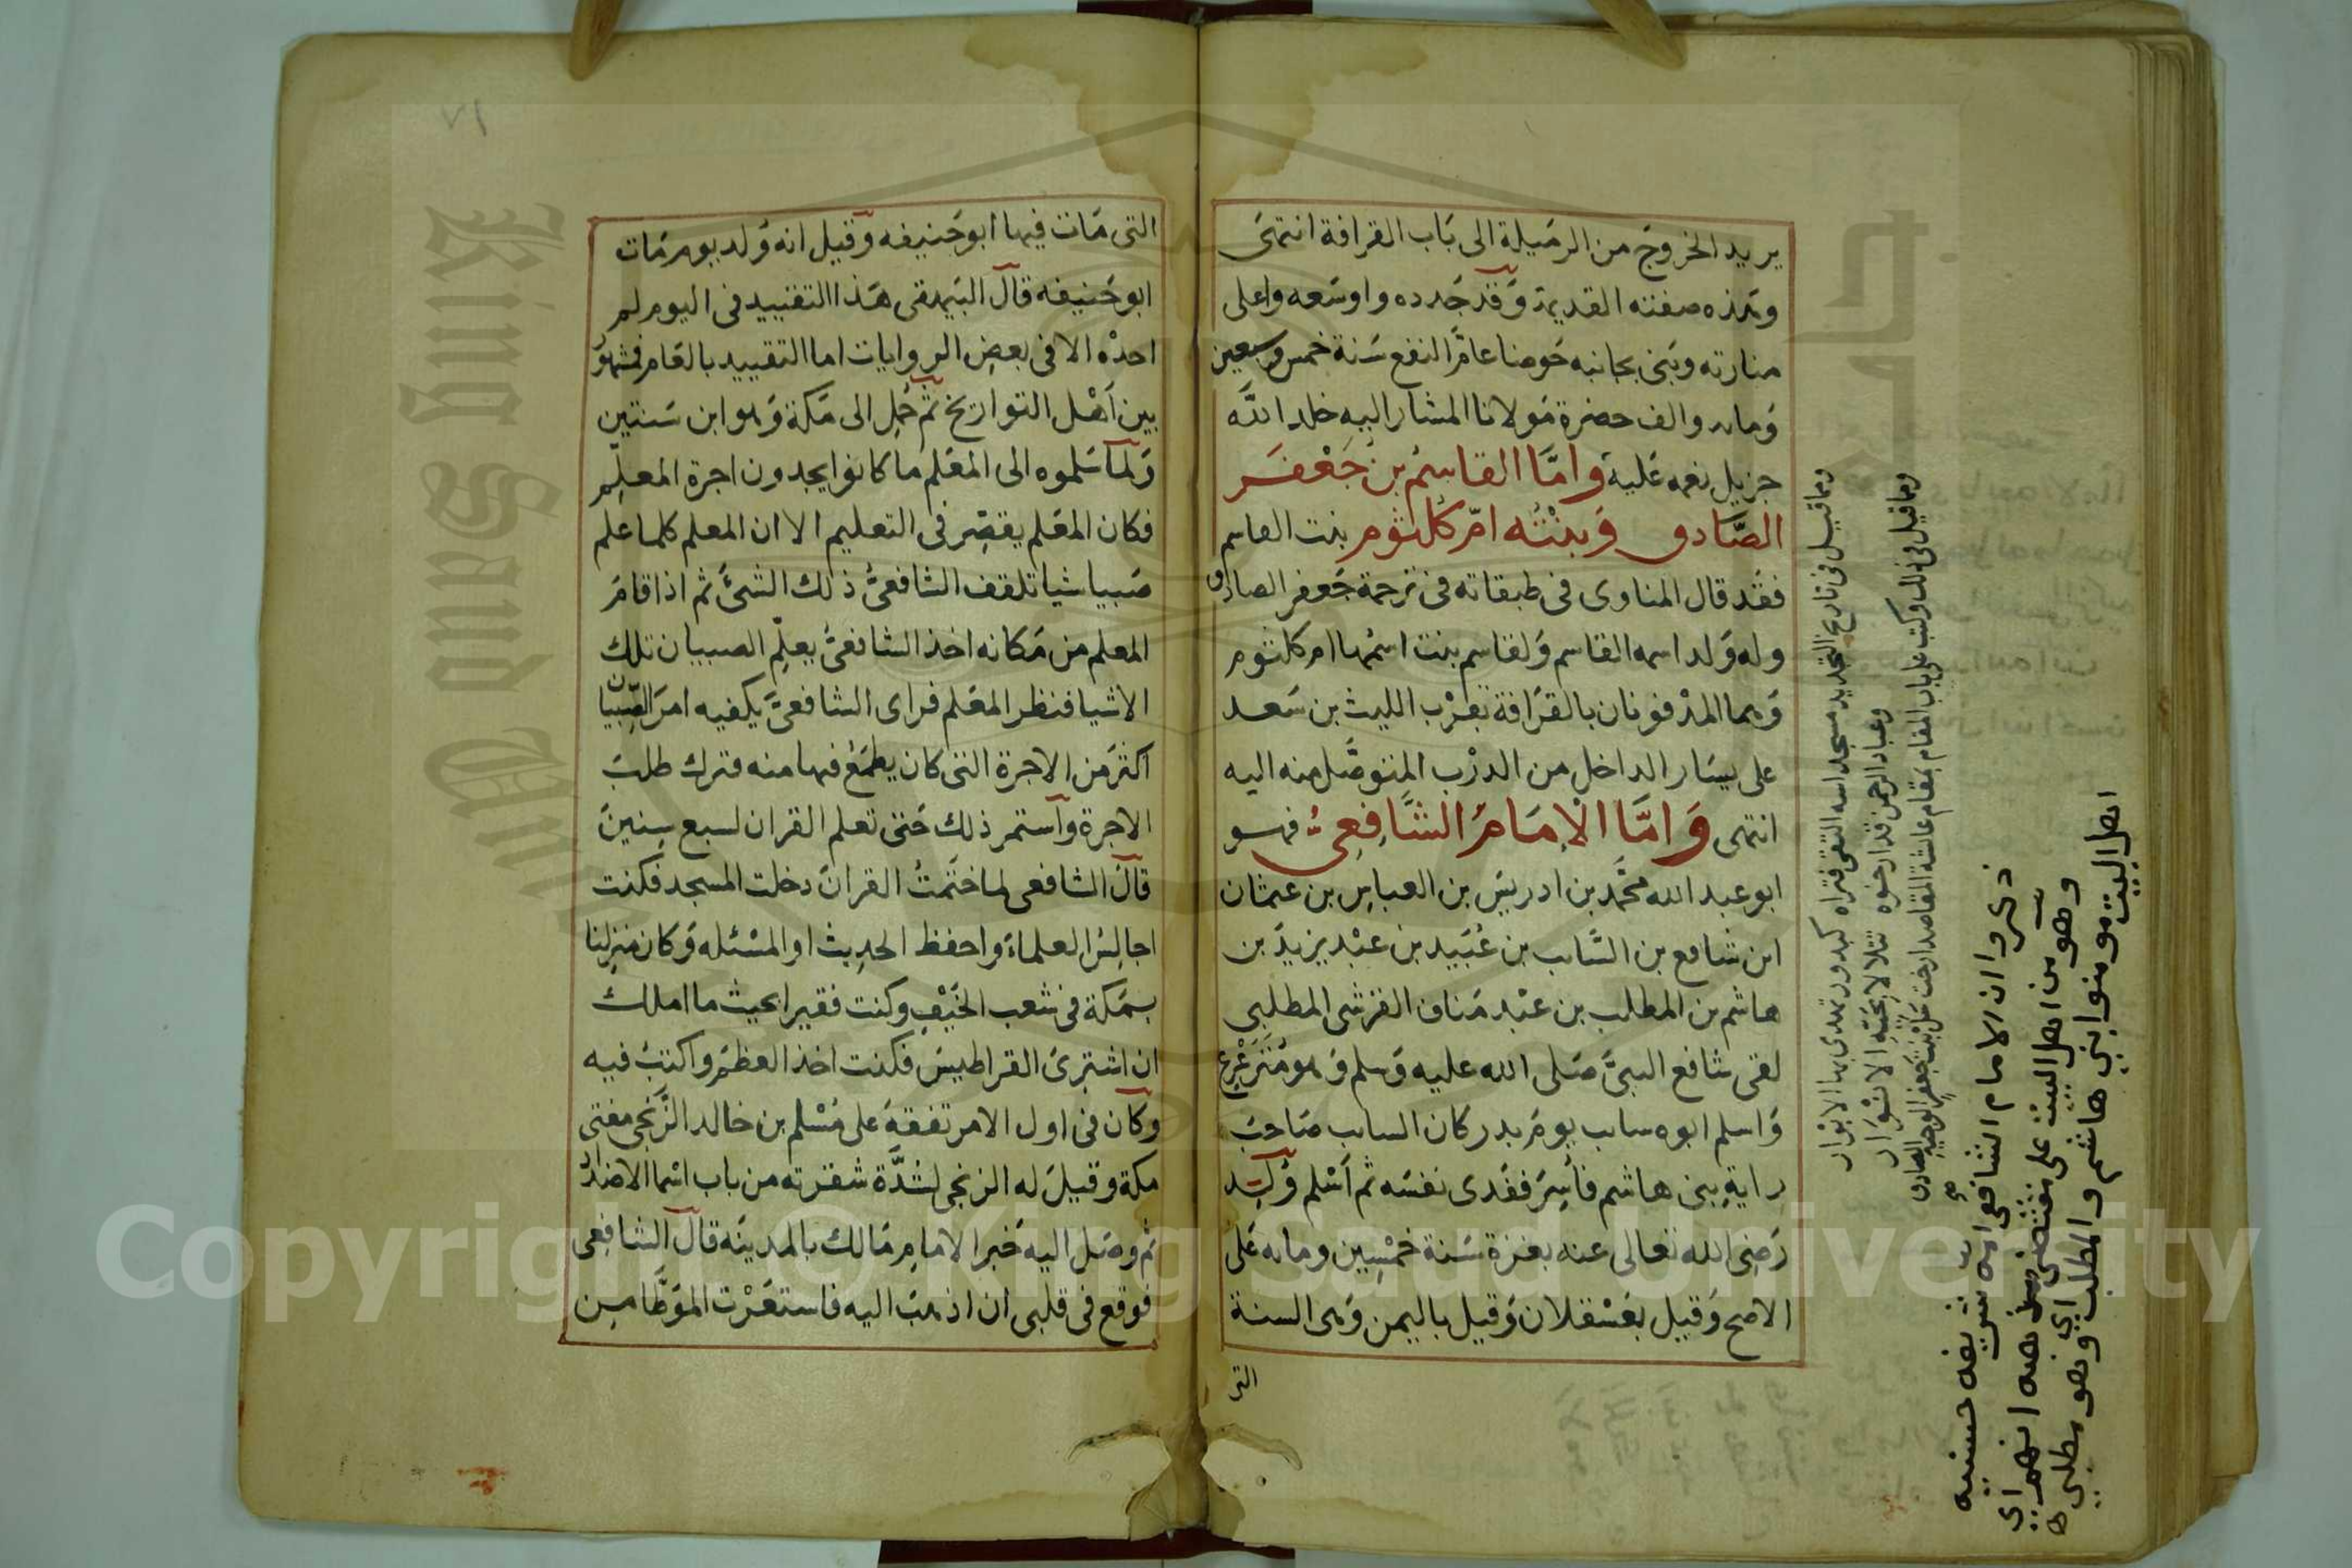 يريد الخروج من الرميلة الى باب القرافة انتهى
وهذه صفته القديمة وقد جدده واوسعه واعلى
منارته وبنى بجانبه حوضا عام النفع سنة خمس وسبعين
ومايه والف حضرة مولانا المشار اليه خلد الله
جزيل نعمه عليه واما القاسم بن جعفر
الصادق وبنته ام كلثوم بنت القاسم
فقد قال المناوى فى طبقاته فى ترجمة جعفر الصادق
وله ولد اسمه القاسم ولقاسم بنت اسمها ام كلثوم
وهما المدفونان بالقرافة بقرب الليث بن سعد
على يسار الداخل من الدرب المتوصل منه اليه
انتهى واما الامام الشافعى فهو
ابو عبد الله محمد بن ادريس بن العباس بن عثمان
ابن شافع بن السايب بن عبيد بن عبد يزيد بن
هاشم بن المطلب بن عبد مناف القرشى المطلبى
لقى شافع النبى صلى الله عليه وسلم وهو مترعرع
واسلم ابوه سايب يوم بدر كان السايب صاحب
راية بنى هاشم فأسر ففدى نفسه ثم أسلم ولد
رضى الله تعالى عنه بغزة سنة خمسين ومايه على
الاصح وقيل بعسقلان وقيل باليمن وهى السنة
التى
ومما قيل فى تاريخ التجديد
مسجد اسه التقى فتراه كبدور تهدى بها الابرار
وعباد الرحمن قد ارخوه تتلالا بحبه الانوار
ومما قيل فى ذلك وكتب على باب المقام
بمقام عائشة المقاصد ارخت سل بنت جعفر الوجيه الصادق
ذكروا ان الامام الشافعى امه شريفه حسنيه
وهو من اهل البيت على مقتضى مذهبه انهم اى
اهل البيت مومنوا بنى هاشم والمطلب وهو مطلبى
١٧
التى مات فيها ابو حنيفه وقيل انه ولد يوم مات
ابو حنيفه قال البيهقى هذا التقييد فى اليوم لم
اجده الا فى بعض الروايات اما التقييد بالعام فمشهور
بين أهل التواريخ ثم حمل الى مكة وهو ابن سنتين
ولما سلموه الى المعلم ما كانوا يجدون اجرة المعلم
فكان المعلم يقصر فى التعليم الا ان المعلم كلما علم
صبيا شيا تلقف الشافعى ذلك الشئ ثم اذا قام
المعلم من مكانه اخذ الشافعى يعلم الصبيان تلك
الاشيا فنظر المعلم فراى الشافعى يكفيه امر الصبيان
اكثر من الاجرة التى كان يطمع فيها منه فترك طلب
الاجرة واستمر ذلك حتى تعلم القران لسبع سنين
قال الشافعى لما ختمت القران دخلت المسجد فكنت
اجالس العلماء واحفظ الحديث او المسئله وكان منزلنا
بمكة فى شعب الخيف وكنت فقيرا بحيث ما املك
ان اشترى القراطيس فكنت اخذ العظم واكتب فيه
وكان فى اول الامر تفقه على مسلم بن خالد الزنجى مفتى
مكة وقيل له الزنجى لشدة شقرته من باب اسما الاضداد
ثم وصل اليه خبر الامام مالك بالمدينه قال الشافعى
فوقع فى قلبى ان اذهب اليه فاستعرت الموطأ من
King Saud Uni
Copyright © King Saud University